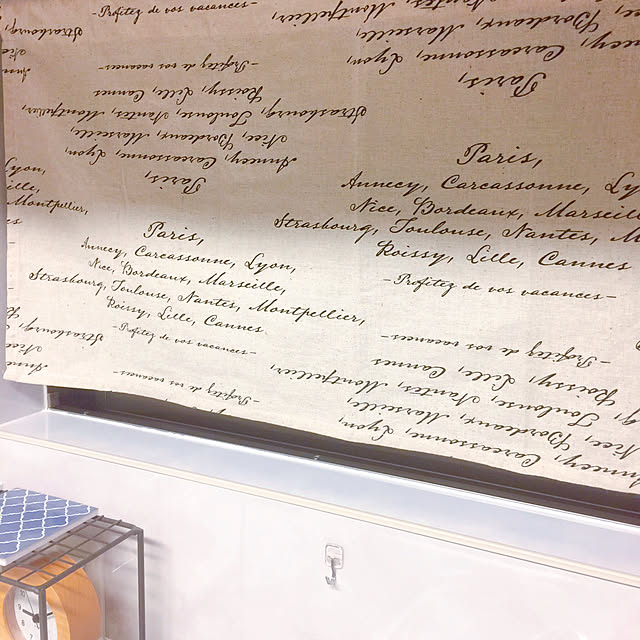 - Profitez de vos vacances -
Strasbourg, Toulouse, Nantes, Montpellier,
Nice, Bordeaux,
Annecy, Carcassonne, Lyon,
Paris,
- Profitez de vos vacances -
Roissy, Lille, Cannes
Strasbourg, Toulouse, Nantes, Montpellier,
Nice, Bordeaux, Marseille,
Annecy, Carcassonne, Lyon,
Paris,
Lyon,
Montpellier,
Paris,
Annecy, Carcassonne, Lyon,
Nice, Bordeaux, Marseille,
Strasbourg, Toulouse, Nantes, Montpellier,
Roissy, Lille, Cannes
- Profitez de vos vacances -
Paris,
Annecy, Carcassonne,
Nice, Bordeaux,
Strasbourg, Toulouse, Nantes,
Roissy, Lille, Cannes
- Profitez de vos vacances -
- Profitez de vos vacances -
Strasbourg,
- Profitez de vos vacances -
Roissy, Lille, Cannes
Toulouse, Nantes, Montpellier,
Nice, Bordeaux, Marseille,
Annecy, Carcassonne, Lyon,